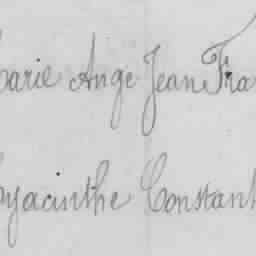 arie Ange Jean Fra
yacinthe Constant